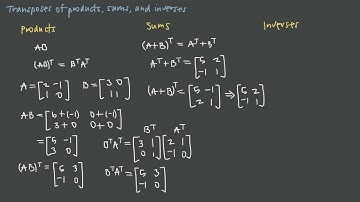 Transposes of products, sums, and inverses
Products
AB
(AB)ᵀ = BᵀAᵀ
A = [2 -1; 1 0] B = [3 0; 1 1]
AB = [6+(-1) 0+(-1); 3+0 0+0]
= [5 -1; 3 0]
(AB)ᵀ = [5 3; -1 0]
Bᵀ Aᵀ
BᵀAᵀ = [3 1; 0 1] [2 1; -1 0]
BᵀAᵀ = [5 3; -1 0]
Sums
(A+B)ᵀ = Aᵀ+Bᵀ
Aᵀ+Bᵀ = [5 2; -1 1]
(A+B)ᵀ = [5 -1; 2 1] ⇒ [5 2; -1 1]
Inverses